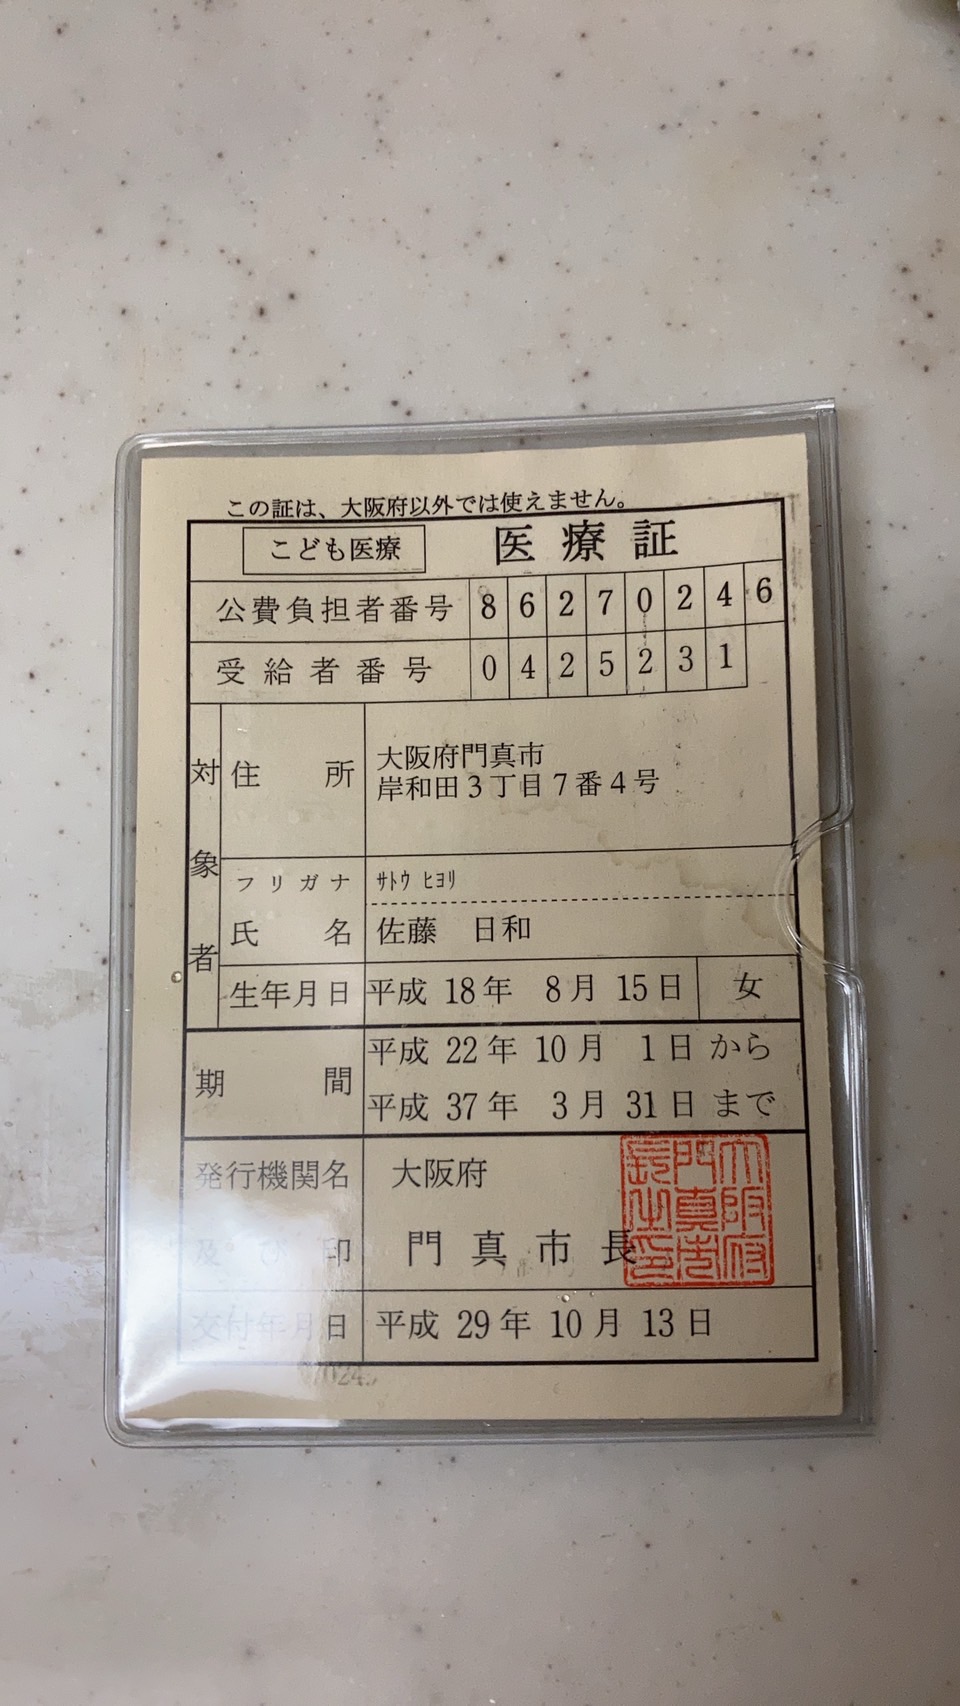 この証は、大阪府以外では使えません。
こども医療 医療証
公費負担者番号 8 6 2 7 0 2 4 6
受給者番号 0 4 2 5 2 3 1
対象者
住所 大阪府門真市
岸和田3丁目7番4号
フリガナ ｻﾄｳ ﾋﾖﾘ
氏名 佐藤 日和
生年月日 平成 18年 8月 15日 女
期間 平成 22年 10月 1日 から
平成 37年 3月 31日 まで
発行機関名 大阪府
及び印 門真市長
大阪府門真市長之印
交付年月日 平成 29年 10月 13日